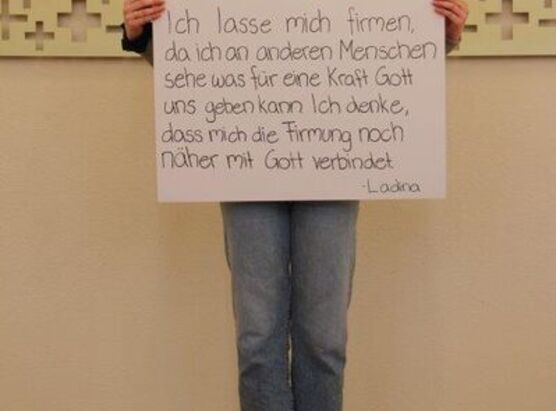 Ich lasse mich firmen,
da ich an anderen Menschen
sehe was für eine Kraft Gott
uns geben kann Ich denke,
dass mich die Firmung noch
näher mit Gott verbindet
-Ladina